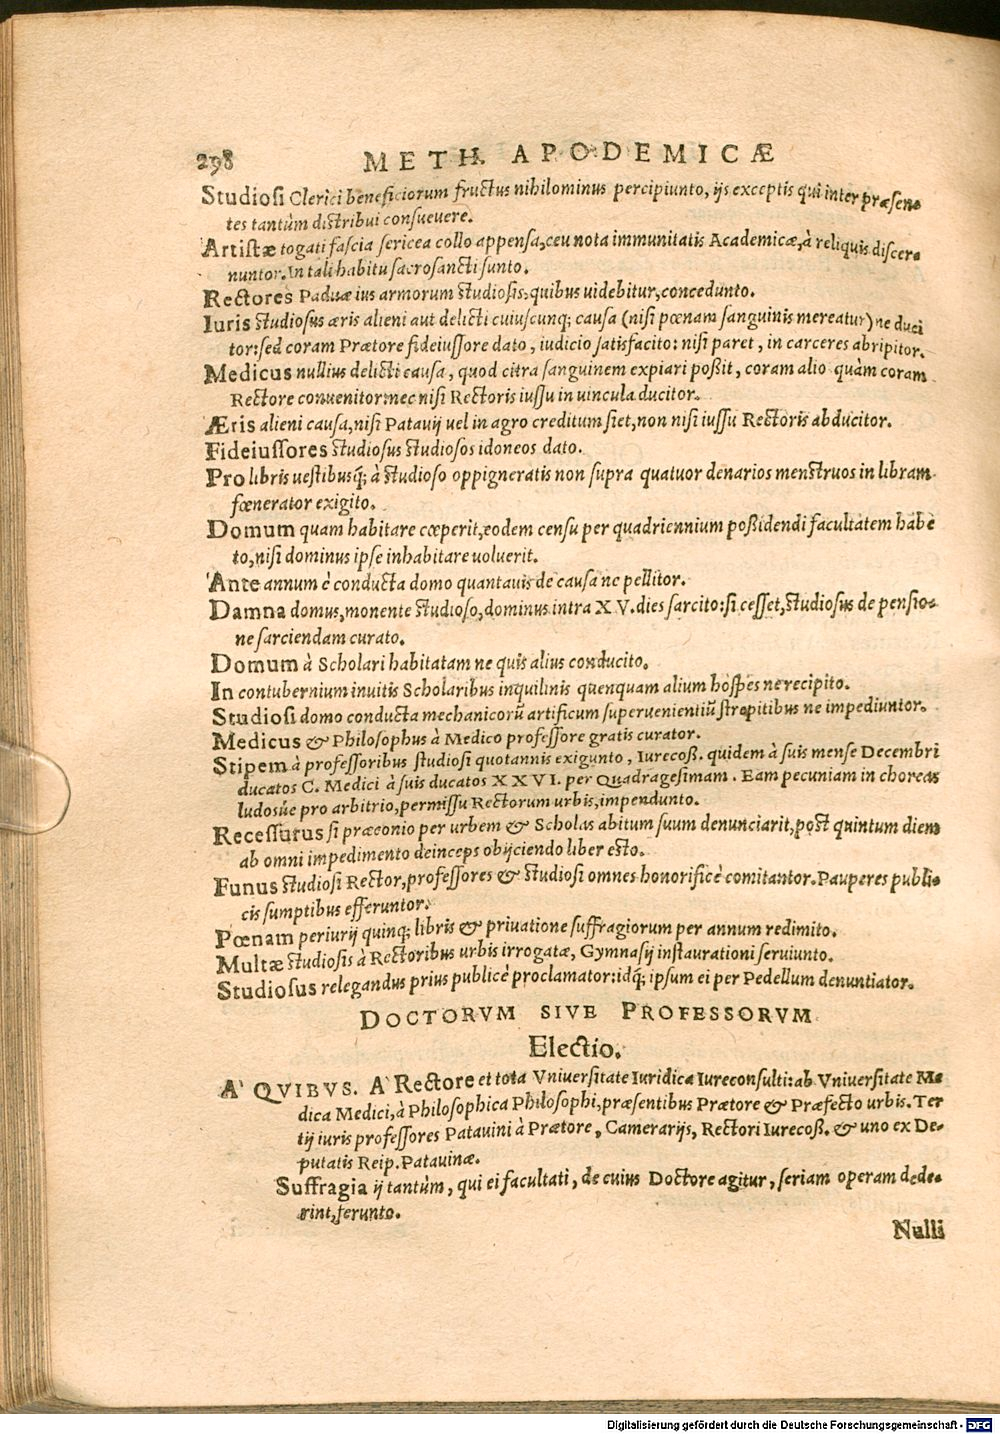 298 METH. APODEMICÆ
Studiosi Clerici beneficiorum fructus nihilominus percipiunto, ijs exceptis qui inter præsen-
tes tantùm distribui consueuere.
Artistæ togati fascia sericea collo appensa, ceu nota immunitatis Academicæ, à reliquis discer-
nuntor. In tali habitu sacrosancti sunto.
Rectores Paduæ ius armorum studiosis, quibus uidebitur, concedunto.
Iuris studiosus æris alieni aut delicti cuiuscunq; causa (nisi pœnam sanguinis mereatur) ne duci
tor: sed coram Prætore fideiussore dato, iudicio satisfacito: nisi paret, in carceres abripitor.
Medicus nullius delicti causa, quod citra sanguinem expiari poßit, coram alio quàm coram
Rectore conuenitor: nec nisi Rectoris iussu in uincula ducitor.
Æris alieni causa, nisi Patauij uel in agro creditum siet, non nisi iussu Rectoris abducitor.
Fideiussores studiosus studiosos idoneos dato.
Pro libris uestibusq́; à studioso oppigneratis non supra quatuor denarios menstruos in libram
fœnerator exigito.
Domum quam habitare cœperit, eodem censu per quadriennium poßidendi facultatem habē
to, nisi dominus ipse inhabitare uoluerit.
Ante annum è conducta domo quantauis de causa ne pellitor.
Damna domus, monente studioso, dominus intra XV. dies sarcito: si cesset, studiosus de pensio-
ne sarciendam curato.
Domum à Scholari habitatam ne quis alius conducito.
In contubernium inuitis Scholaribus inquilinis quenquam alium hospes ne recipito.
Studiosi domo conducta mechanicorū artificum superuenientiū strepitibus ne impediuntor.
Medicus & Philosophus à Medico professore gratis curator.
Stipem à professoribus studiosi quotannis exigunto, Iurecoß. quidem à suis mense Decembri
ducatos C. Medici à suis ducatos XXVI. per Quadragesimam. Eam pecuniam in choreas
ludosúe pro arbitrio, permissu Rectorum urbis, impendunto.
Recessurus si præconio per urbem & Scholas abitum suum denunciarit, post quintum diem
ab omni impedimento deinceps obijciendo liber esto.
Funus studiosi Rector, professores & studiosi omnes honorificè comitantor. Pauperes publi-
cis sumptibus efferuntor.
Pœnam periurij quinq; libris & priuatione suffragiorum per annum redimito.
Multæ studiosis à Rectoribus urbis irrogatæ, Gymnasij instaurationi seruiunto.
Studiosus relegandus prius publicè proclamator: idq́; ipsum ei per Pedellum denuntiator.
DOCTORVM SIVE PROFESSORVM
Electio.
A' QVIBVS. A' Rectore et tota Vniuersitate Iuridica Iureconsulti: ab Vniuersitate Me
dica Medici, à Philosophica Philosophi, præsentibus Prætore & Præfecto urbis. Ter
tij iuris professores Patauini à Prætore, Camerarijs, Rectori Iurecoß. & uno ex De-
putatis Reip. Patauinæ.
Suffragia ij tantùm, qui ei facultati, de cuius Doctore agitur, seriam operam dede-
rint, ferunto.
Nulli
Digitalisierung gefördert durch die Deutsche Forschungsgemeinschaft - DFG